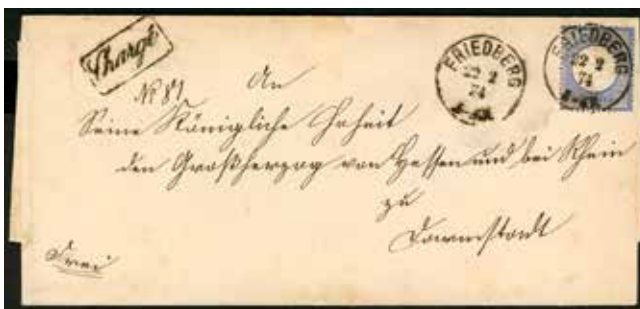 Chargé
Nº 81
FRIEDBERG
22 2
74
FRIEDBERG
22 2
74
An
Seine Königliche Hoheit
den Großherzog von Hessen und bei Rhein
zu
Darmstadt
Frei